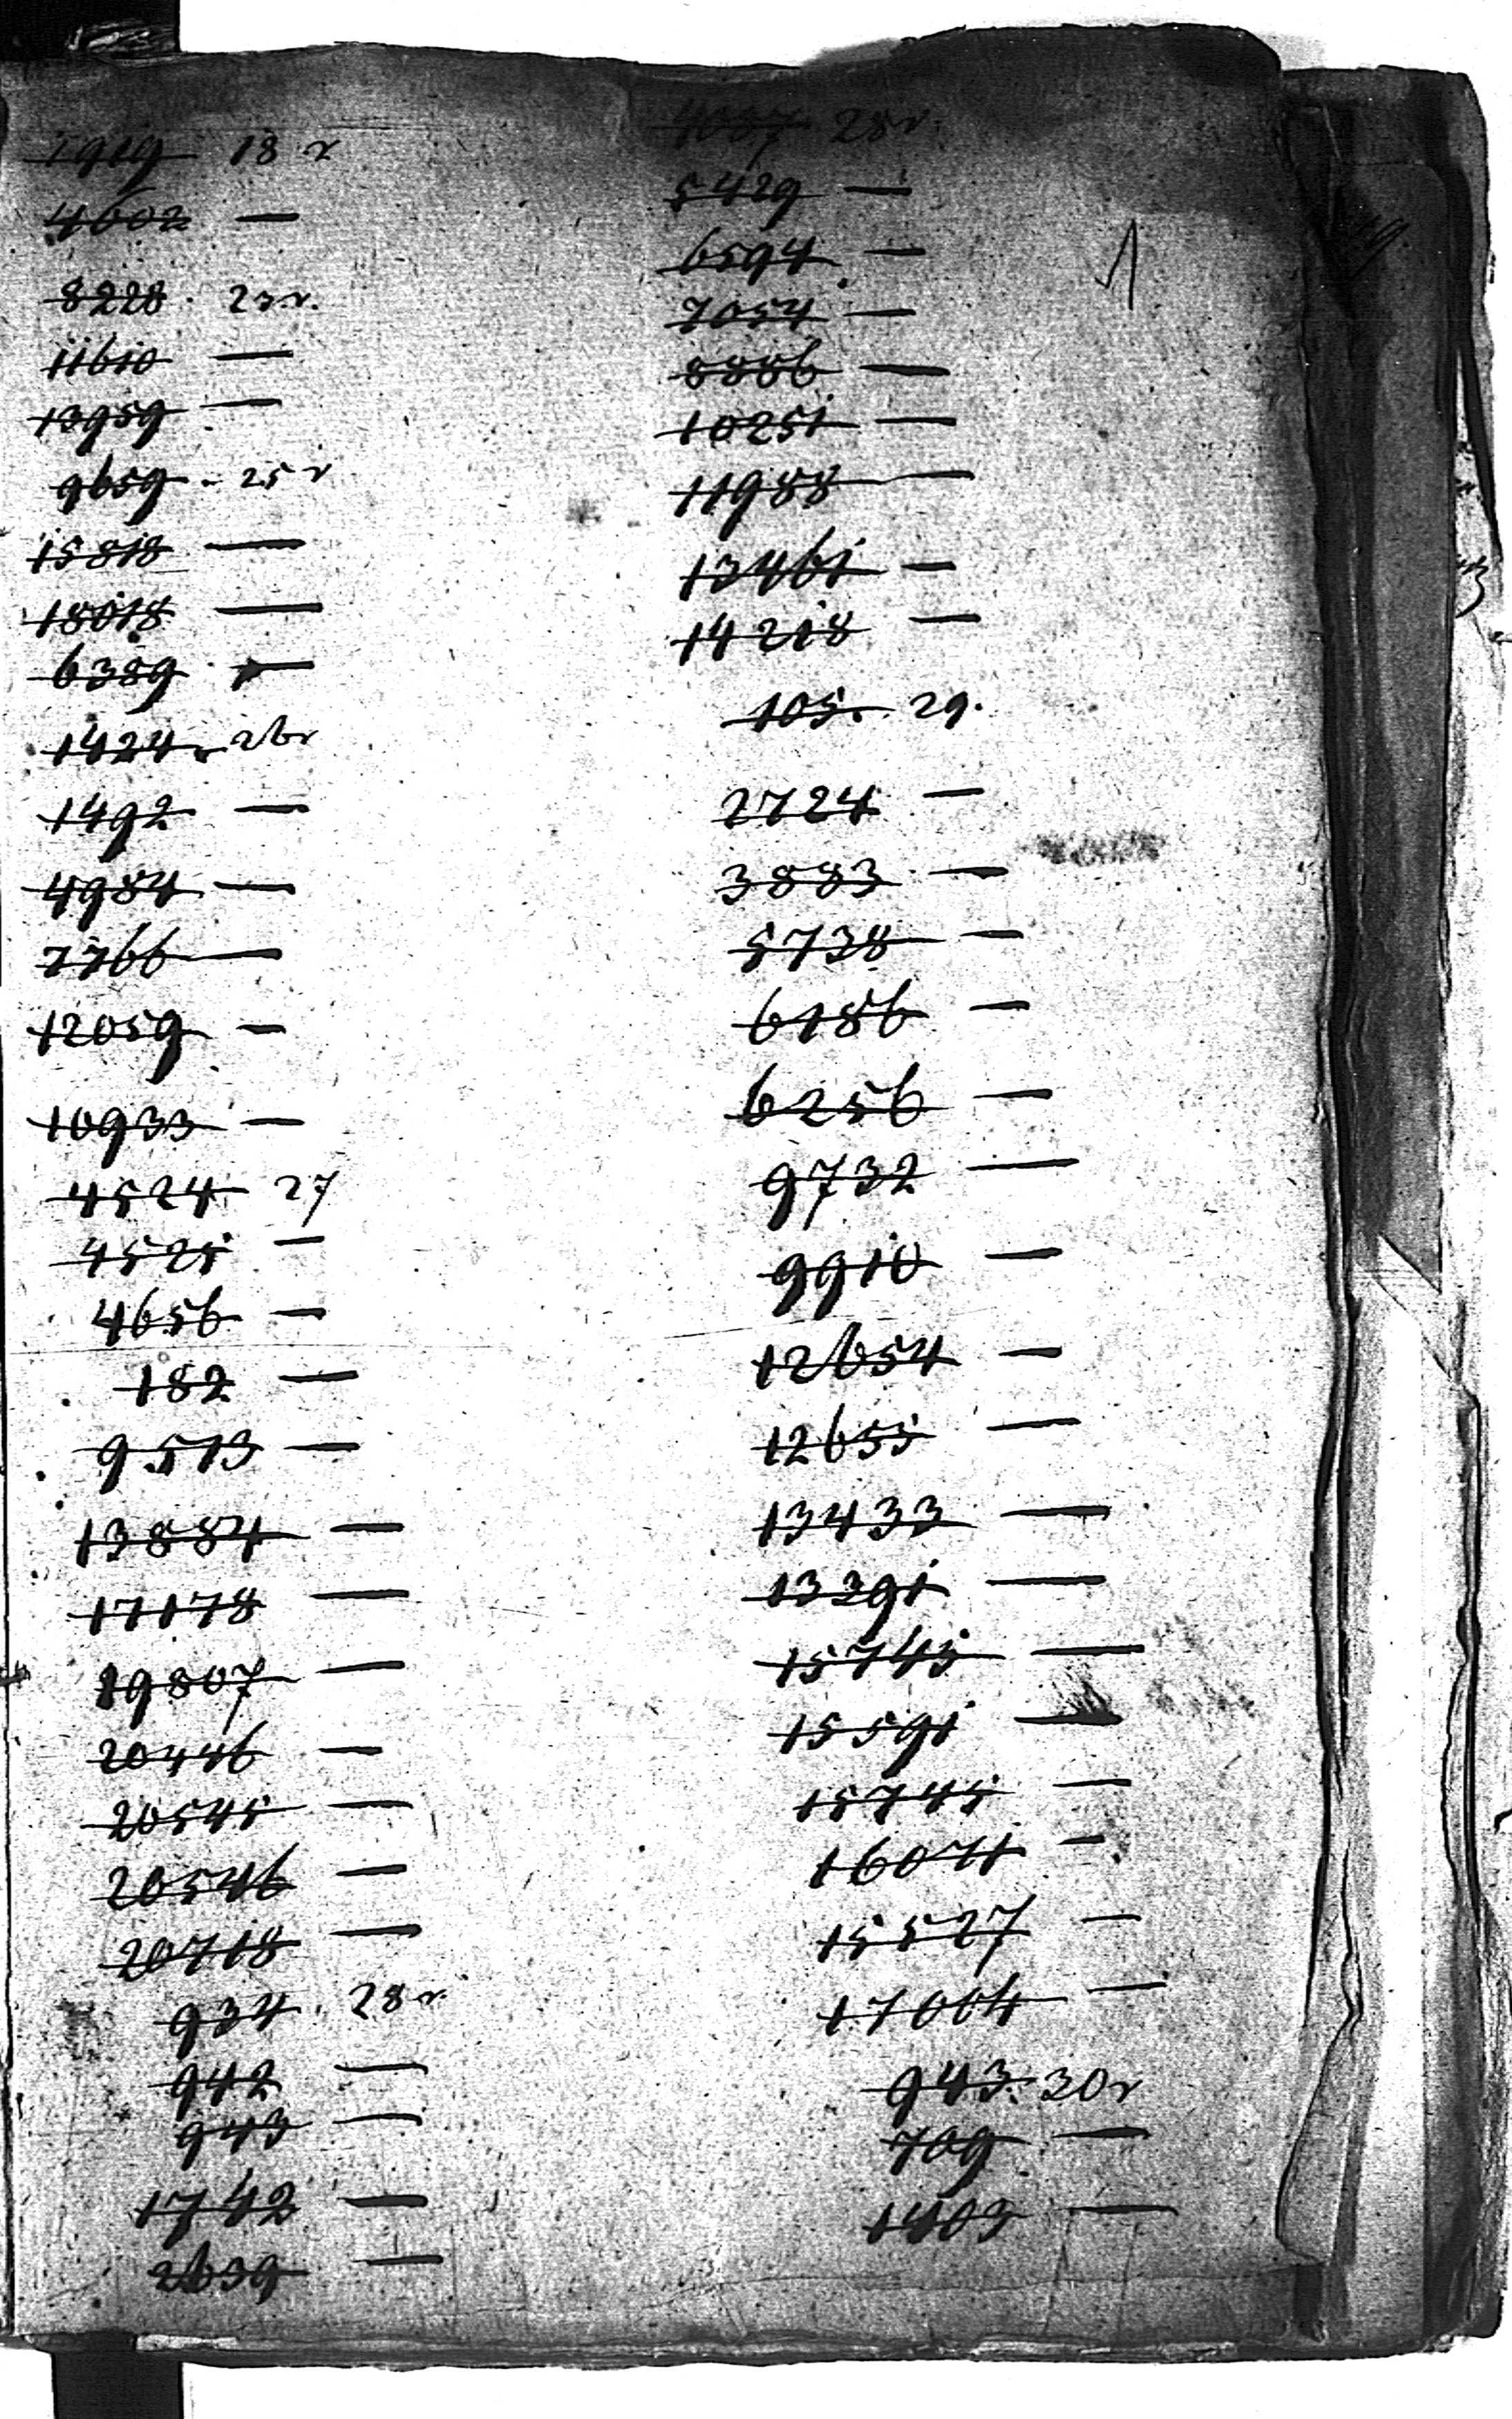 1919 18 r
4602 —
8228. 23 r.
11610 —
13959 —
9659. 25 r
15818 —
18018 —
6389. —
1424. 26 r
1492 —
4984 —
7766 —
12059 —
10933 —
4524 27
4525 —
4656 —
182 —
9513 —
13884 —
17178 —
19807 —
20446 —
20545 —
20546 —
20718 —
934. 28 r
942 —
943 —
1742 —
2639 —
4087 28 r.
5429 —
6594 —
7054 —
8886 —
10251 —
11988 —
13461 —
14218 —
105. 29.
2724 —
3883 —
5738 —
6186 —
6256 —
9732 —
9910 —
12654 —
12655 —
13433 —
13391 —
15745 —
15591 —
15745 —
16071 —
15527 —
17004 —
943. 30 r
709 —
1403 —